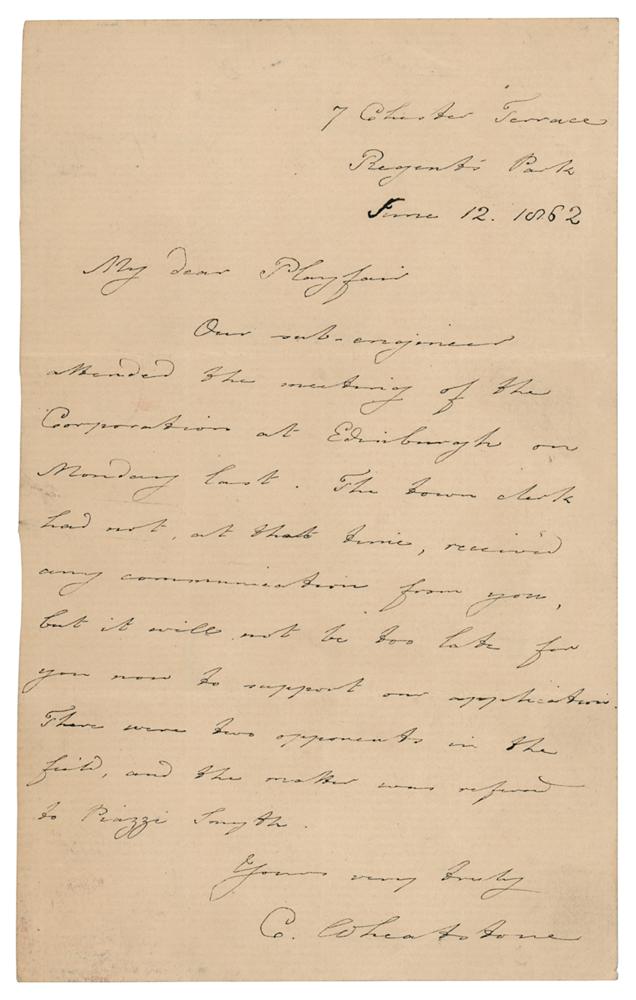 7 Chester Terrace
Regent's Park
June 12. 1862
My dear Playfair
Our sub-engineer
attended the meeting of the
Corporation at Edinburgh on
Monday last. The town clerk
had not, at that time, received
any communication from you,
but it will not be too late for
you now to support our application.
There were two opponents in the
field, and the matter was referred
to Piazzi Smyth.
Yours very truly
C. Wheatstone